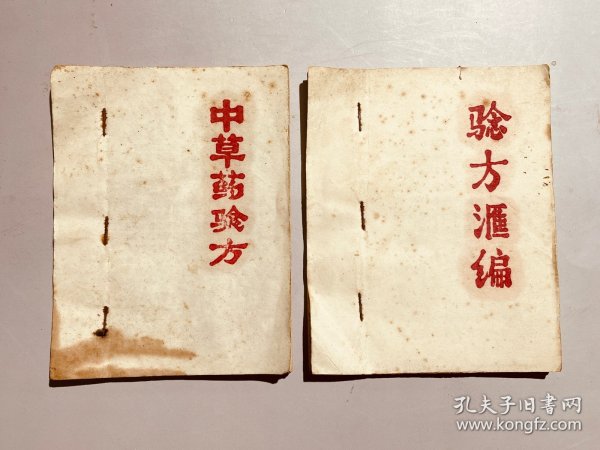 中草药验方
验方滙编
孔夫子旧書网
www.kongfz.com